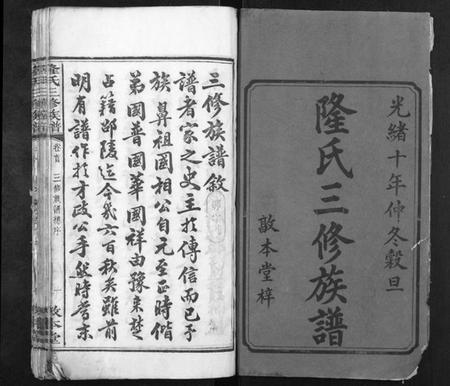 光緒十年仲冬穀旦
隆氏三修族譜
敦本堂梓
三修族譜敘
譜者家之史主於傳信而已予
族鼻祖國相公自元至正時偕
弟國普國華國祥由豫來楚
占籍邵陵迄今幾六百秋矣雖前
明有譜作於才政公手然時當末
隆氏三修族譜
卷首
三修族譜
敦本堂